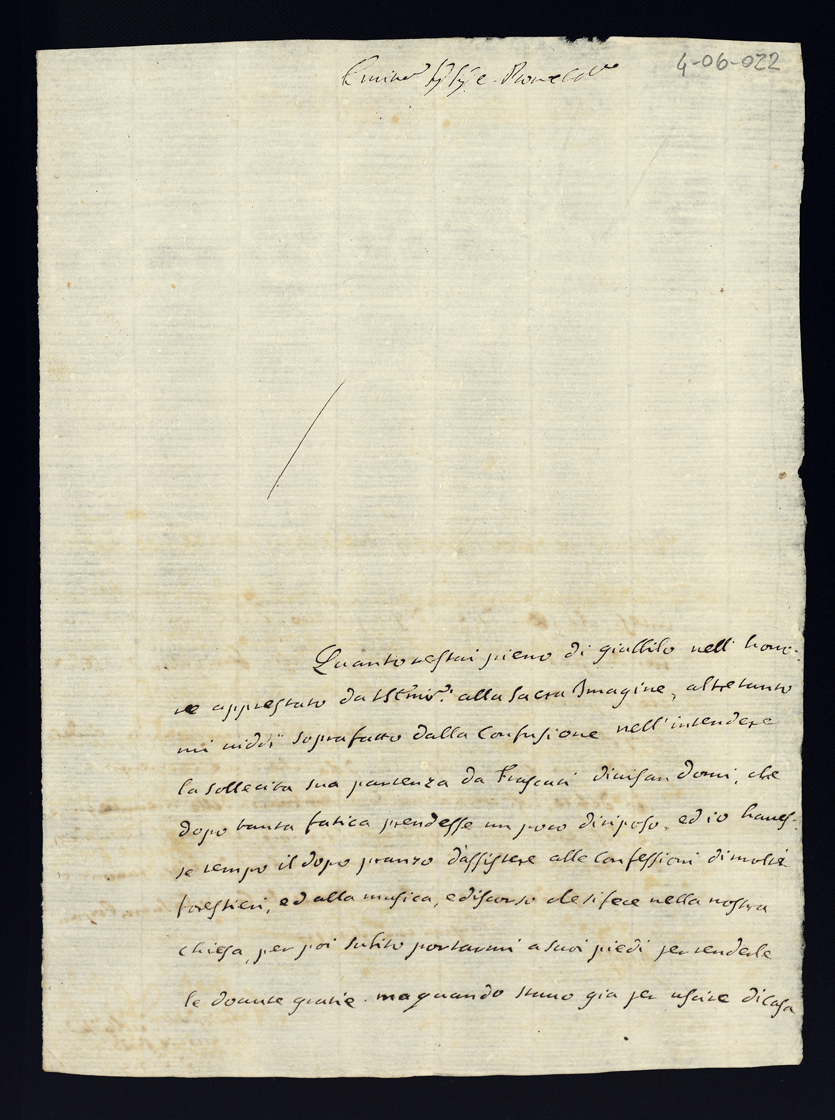 4-06-022
Emin.mo Sig.re e Prone Col.mo
Quanto restai pieno di giubbilo nell' hono-
re apprestato da V. Em.za alla Sacra Imagine, altretanto
mi viddi soprafatto dalla Confusione nell' intendere
la sollecita sua partenza da Frascati divisandomi, che
dopo tanta fatica prendesse un poco di riposo, ed io haves-
se tempo il dopo pranzo d'assistere alle Confessioni di molti
forestieri, ed alla musica, e discorso che si fece nella nostra
Chiesa, per poi subito portarmi a suoi piedi per renderle
le dovute gratie. ma quando stavo gia per uscire di casa